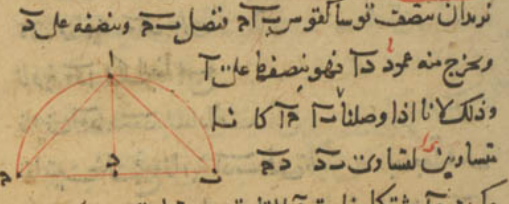 نريدان ننصف قوسا كقوس ب ا ح فنصل ب ح وننصفه على د
ونخرج منه عمود د ا فهو ينصفها على ا
وذلك لانا اذا وصلنا ب ا ح ا كانا
متساويين لتساوى ب د د ح
ا
ح د ب